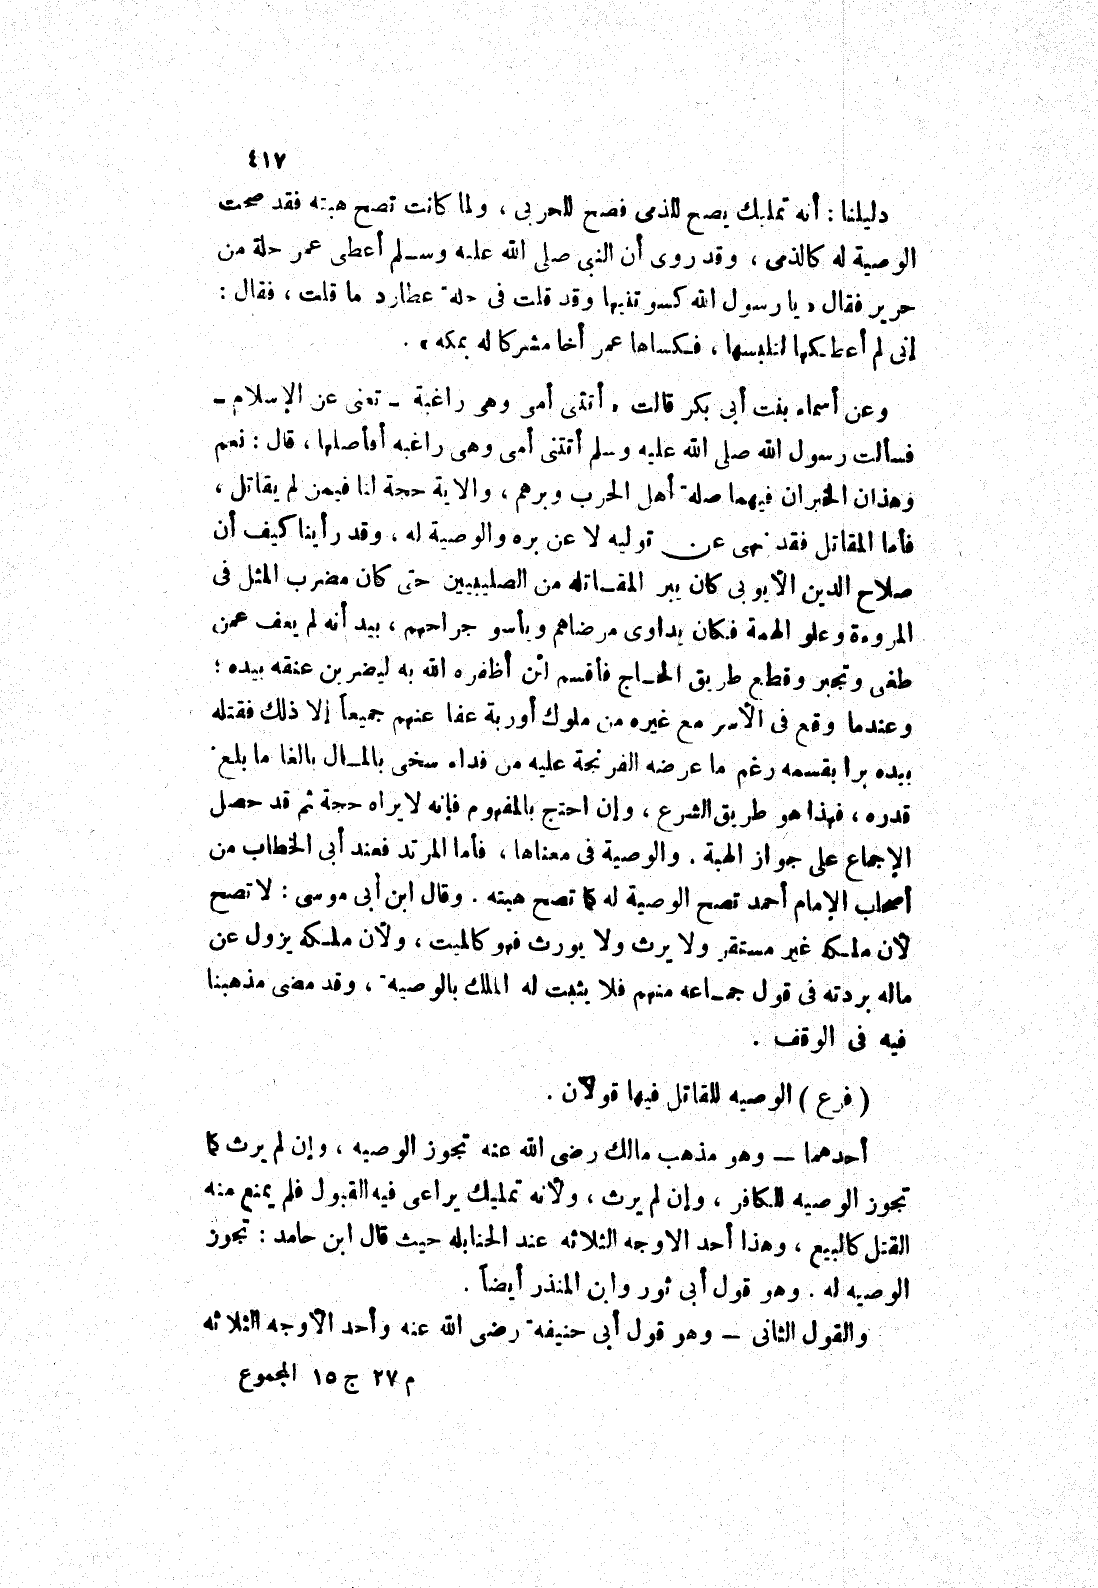 ٤١٧
دليلنا : أنه تمليك يصح للذمى فصح للحربى ، ولما كانت تصح هبته فقد صحت
الوصية له كالذمى ، وقد روى أن النبى صلى الله عليه وسلم أعطى عمر حلة من
حرير فقال « يا رسول الله كسوتنيها وقد قلت فى حلة عطارد ما قلت ، فقال :
إنى لم أعطكها لتلبسها ، فكساها عمر أخا مشركا له بمكه » .
وعن أسماء بنت أبى بكر قالت « أتتنى أمى وهى راغبة - تعنى عن الإسلام -
فسألت رسول الله صلى الله عليه وسلم أتتنى أمى وهى راغبه أفأصلها ، قال : نعم
وهذان الخبران فيهما صلة أهل الحرب وبرهم ، والاية حجة لنا فيمن لم يقاتل ،
فأما المقاتل فقد نهى عن توليه لا عن بره والوصية له ، وقد رأينا كيف أن
صلاح الدين الأيوبى كان يبر المقاتله من الصليبيين حتى كان مضرب المثل فى
المروءة وعلو الهمة فكان يداوى مرضاهم ويأسو جراحهم ، بيد أنه لم يعف عمن
طغى وتجبر وقطع طريق الحاج فأقسم لئن أظفره الله به ليضربن عنقه بيده ؛
وعندما وقع فى الأسر مع غيره من ملوك أوربة عفا عنهم جميعاً إلا ذلك فقتله
بيده برا بقسمه رغم ما عرضه الفرنجة عليه من فداء سخى بالمال بالغا ما بلغ
قدره ، فهذا هو طريق الشرع ، وإن احتج بالمفهوم فإنه لا يراه حجة ثم قد حصل
الإجماع على جواز الهبة . والوصية فى معناها ، فأما المرتد فعند أبى الخطاب من
أصحاب الإمام أحمد تصح الوصية له كما تصح هبته . وقال ابن أبى موسى : لا تصح
لأن ملكه غير مستقر ولا يرث ولا يورث فهو كالميت ، ولأن ملكه يزول عن
ماله بردته فى قول جماعه منهم فلا يثبت له الملك بالوصية ، وقد مضى مذهبنا
فيه فى الوقف .
( فرع ) الوصيه للقاتل فيها قولان .
أحدهما — وهو مذهب مالك رضى الله عنه تجوز الوصيه ، وإن لم يرث كما
تجوز الوصيه للكافر ، وإن لم يرث ، ولأنه تمليك يراعى فيه القبول فلم يمنع منه
القتل كالبيع ، وهذا أحد الاوجه الثلاثه عند الحنابله حيث قال ابن حامد : تجوز
الوصيه له . وهو قول أبى ثور وابن المنذر أيضاً .
والقول الثانى — وهو قول أبى حنيفة رضى الله عنه وأحد الأوجه الثلاثه
م ٢٧ ج ١٥ المجموع